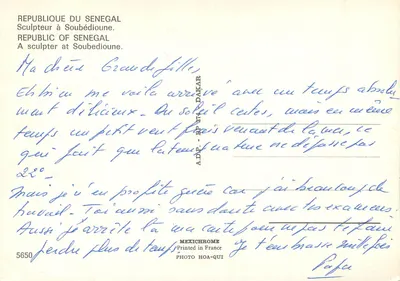 REPUBLIQUE DU SENEGAL
Sculpteur à Soubédioune.
REPUBLIC OF SENEGAL
A sculpter at Soubedioune.
Ma chère Grande fille,
Eh bien me voilà arrivé avec un temps absolu-
ment délicieux. Du soleil certes, mais en même
temps un petit vent frais venant de la mer, ce
qui fait que la température ne dépasse pas
22°.
Mais je n'en profite guère car j'ai beaucoup de
travail. Toi aussi sans doute avec tes examens.
Aussi j'arrête là ma carte pour ne pas te faire
perdre plus de temps. Je t'embrasse mille fois
Papa
5650
MEXICHROME
Printed in France
PHOTO HOA-QUI
A.D.P. - DAKAR